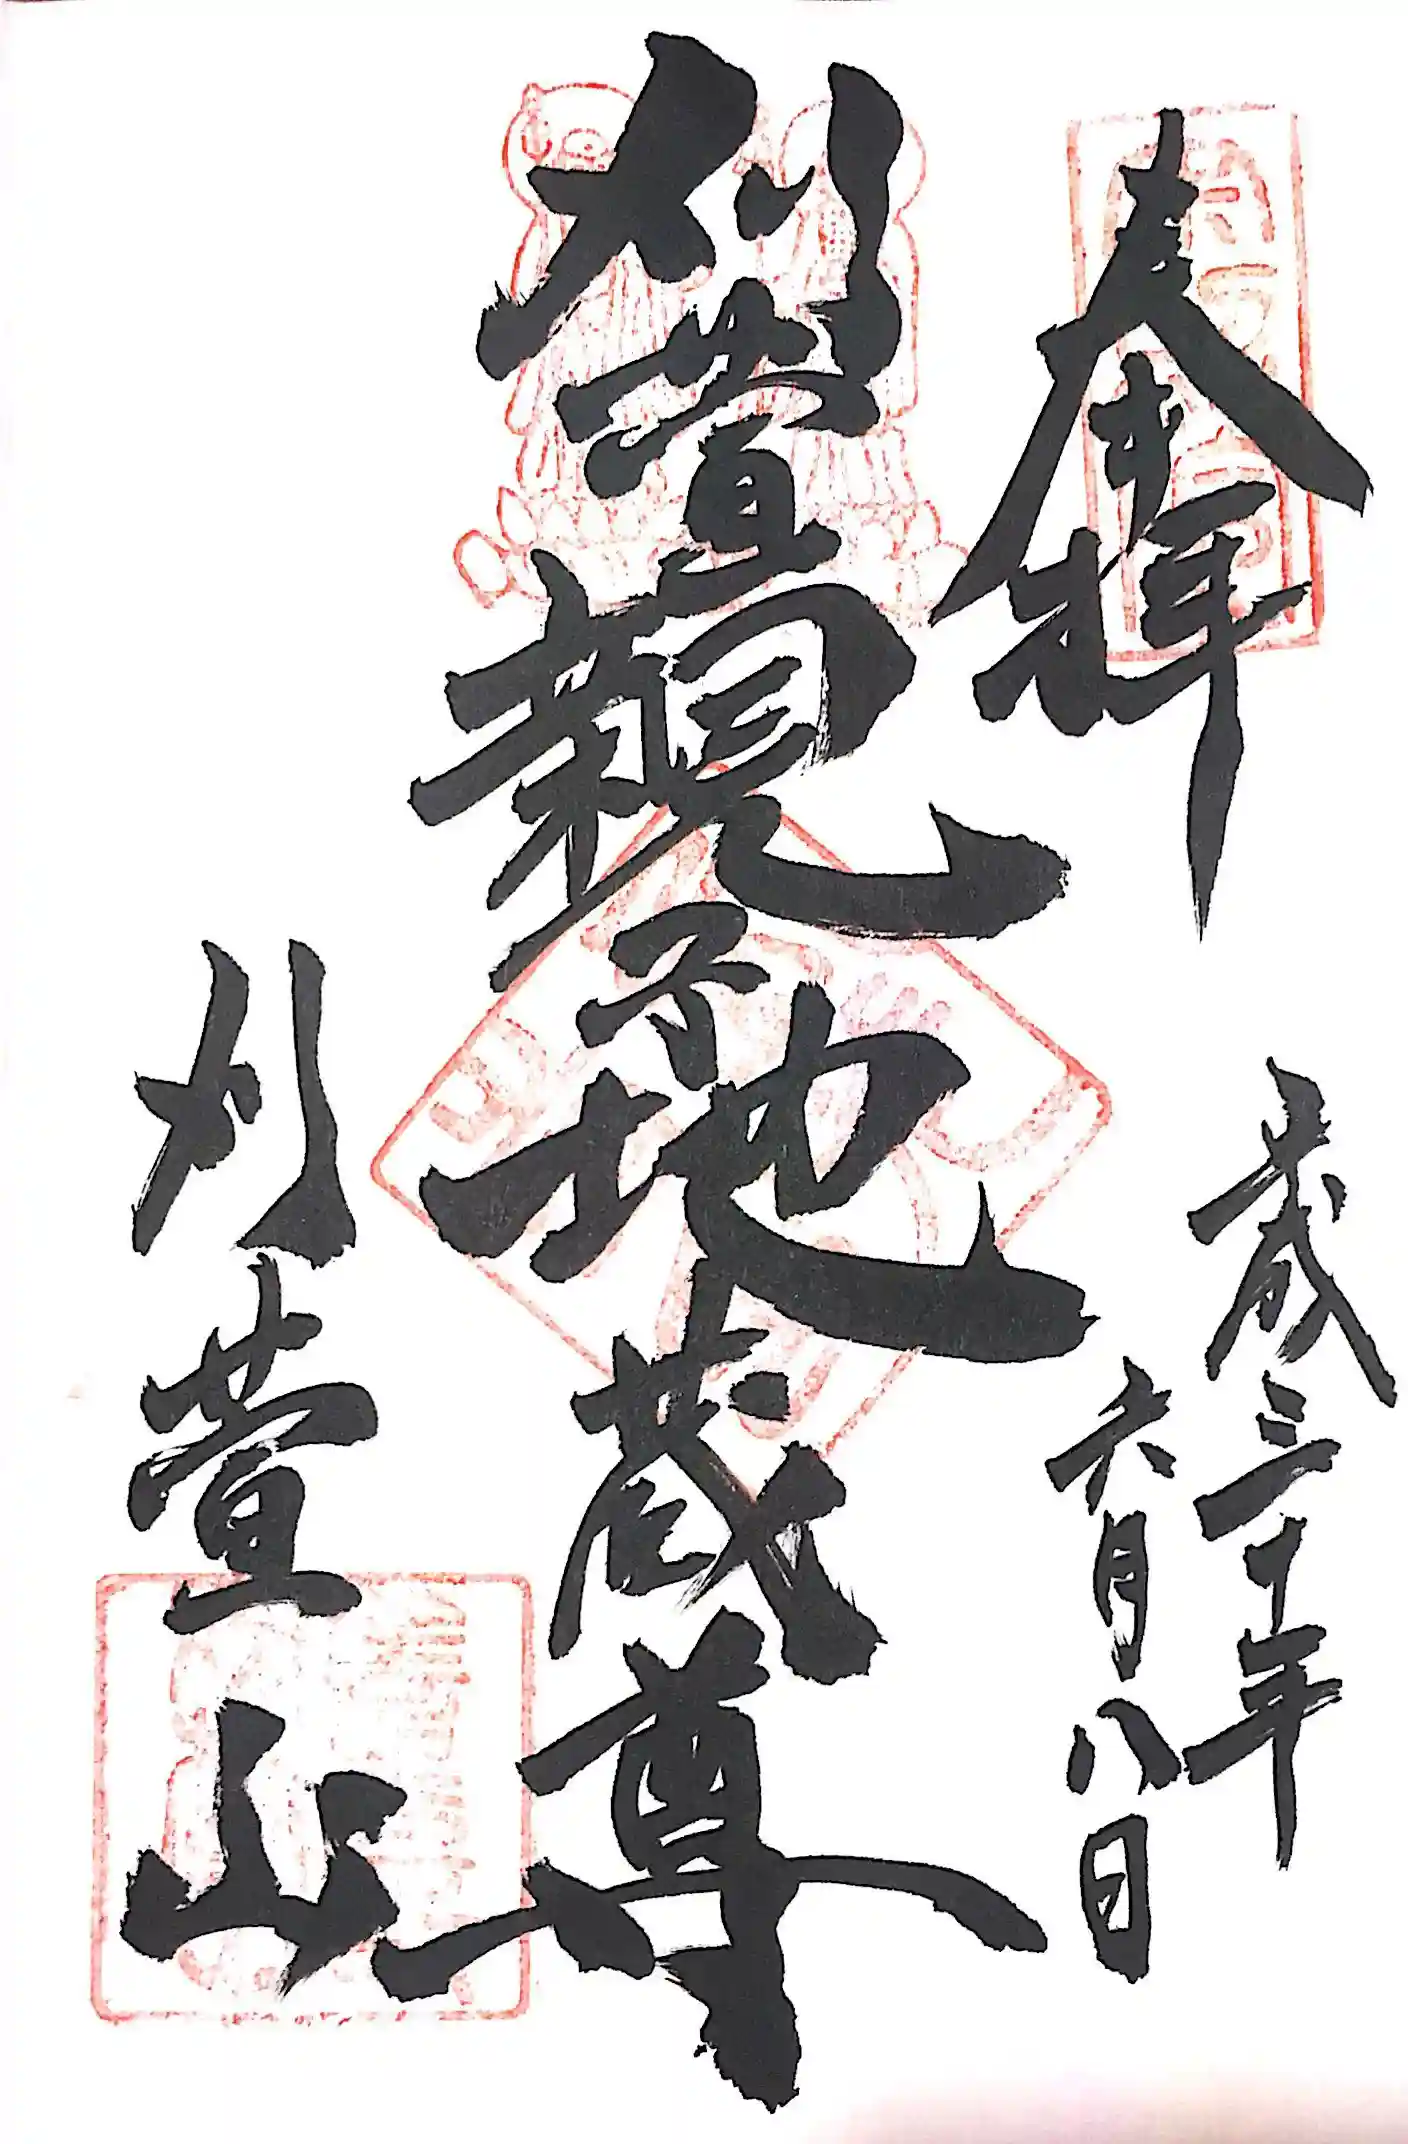 奉拝
歳三十年
六月八日
刈萱親子地蔵尊
刈萱山